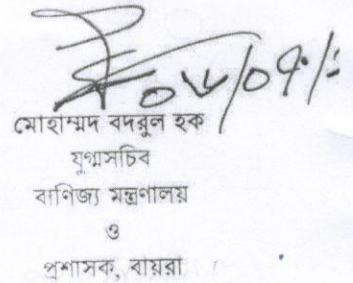 ০৮/০৭/
মোহাম্মদ বদরুল হক
যুগ্মসচিব
বাণিজ্য মন্ত্রণালয়
ও
প্রশাসক, বায়রা